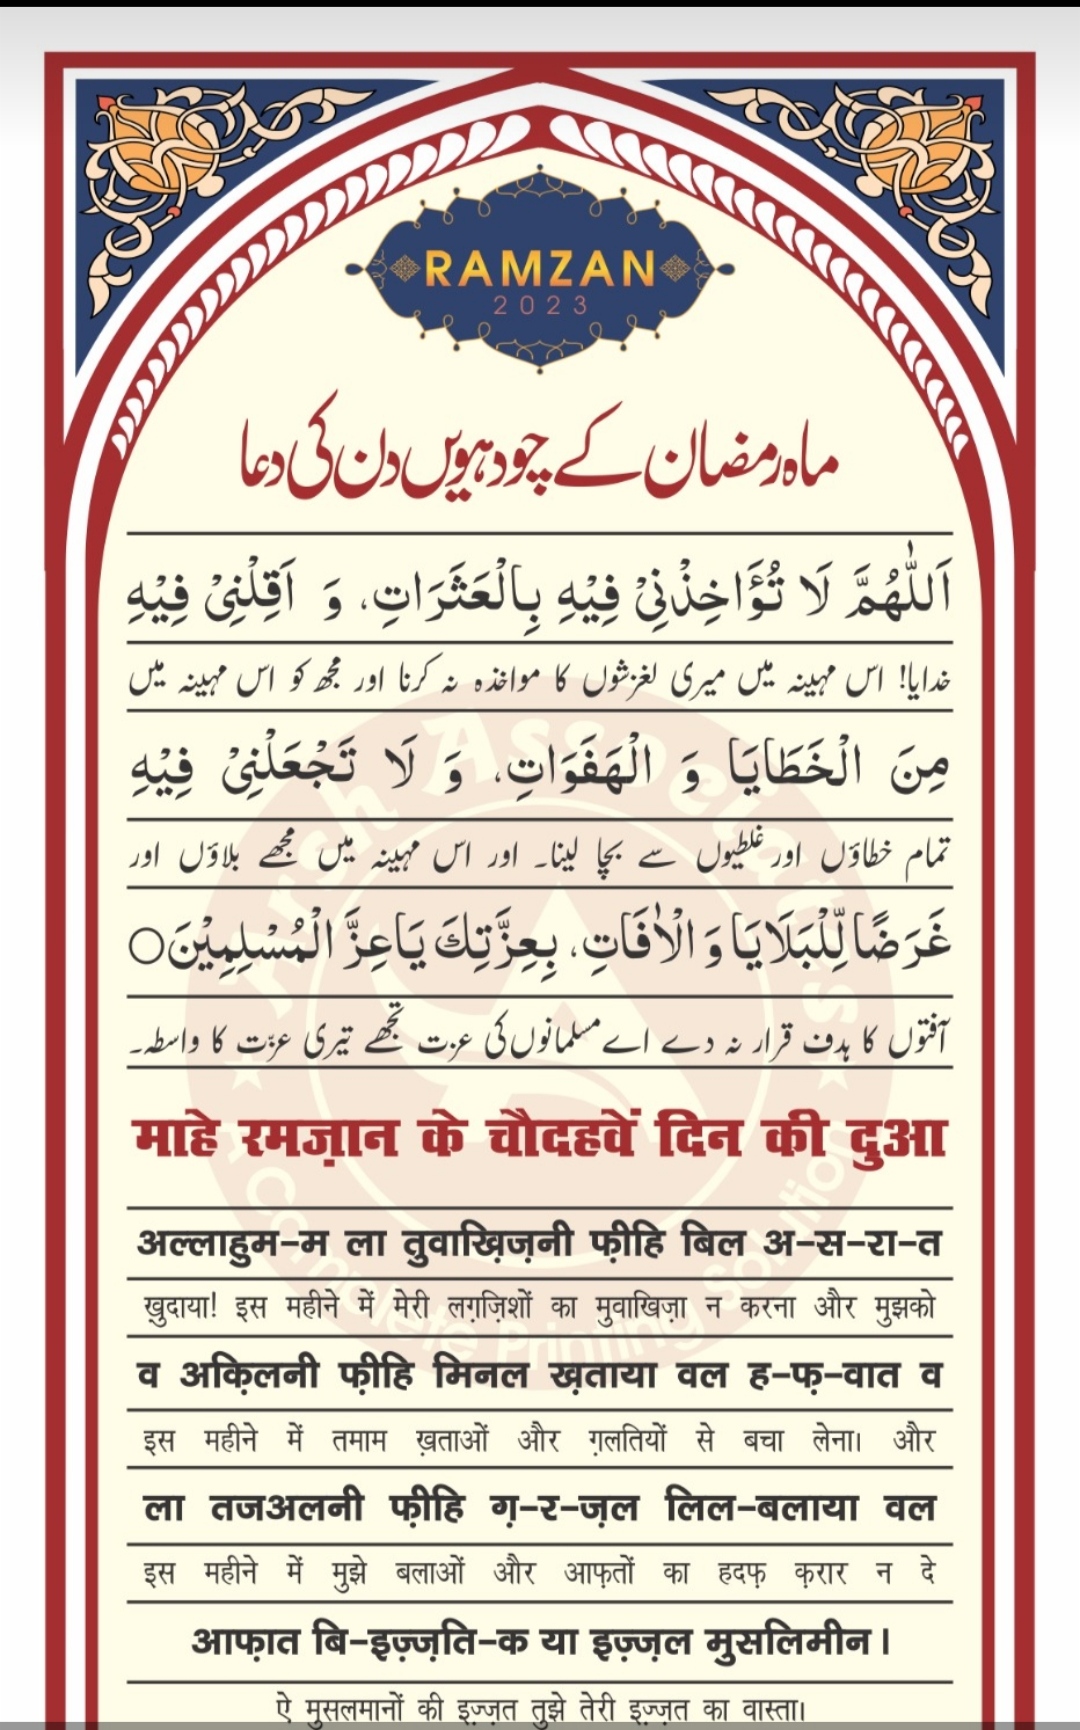 RAMZAN
2023
ماہ رمضان کے چودہویں دن کی دعا
اَللّٰهُمَّ لَا تُؤَاخِذْنِیْ فِیْهِ بِالْعَثَرَاتِ، وَ اَقِلْنِیْ فِیْهِ
خدایا! اس مہینہ میں میری لغزشوں کا مواخذہ نہ کرنا اور مجھ کو اس مہینہ میں
مِنَ الْخَطَایَا وَ الْهَفَوَاتِ، وَ لَا تَجْعَلْنِیْ فِیْهِ
تمام خطاؤں اور غلطیوں سے بچا لینا۔ اور اس مہینہ میں مجھے بلاؤں اور
غَرَضًا لِّلْبَلَایَا وَ الْاٰفَاتِ، بِعِزَّتِكَ یَا عِزَّ الْمُسْلِمِیْنَ○
آفتوں کا ہدف قرار نہ دے اے مسلمانوں کی عزت تجھے تیری عزّت کا واسطہ۔
माहे रमज़ान के चौदहवें दिन की दुआ
अल्लाहुम-म ला तुवाख़िज़नी फ़ीहि बिल अ-स-रा-त
ख़ुदाया! इस महीने में मेरी लग़ज़िशों का मुवाखिज़ा न करना और मुझको
व अक़िलनी फ़ीहि मिनल ख़ताया वल ह-फ़-वात व
इस महीने में तमाम ख़ताओं और ग़लतियों से बचा लेना। और
ला तजअलनी फ़ीहि ग़-र-ज़ल लिल-बलाया वल
इस महीने में मुझे बलाओं और आफ़तों का हदफ़ क़रार न दे
आफ़ात बि-इज़्ज़ति-क या इज़्ज़ल मुसलिमीन।
ऐ मुसलमानों की इज़्ज़त तुझे तेरी इज़्ज़त का वास्ता।
Arsh Associates
A Complete Printing Solution